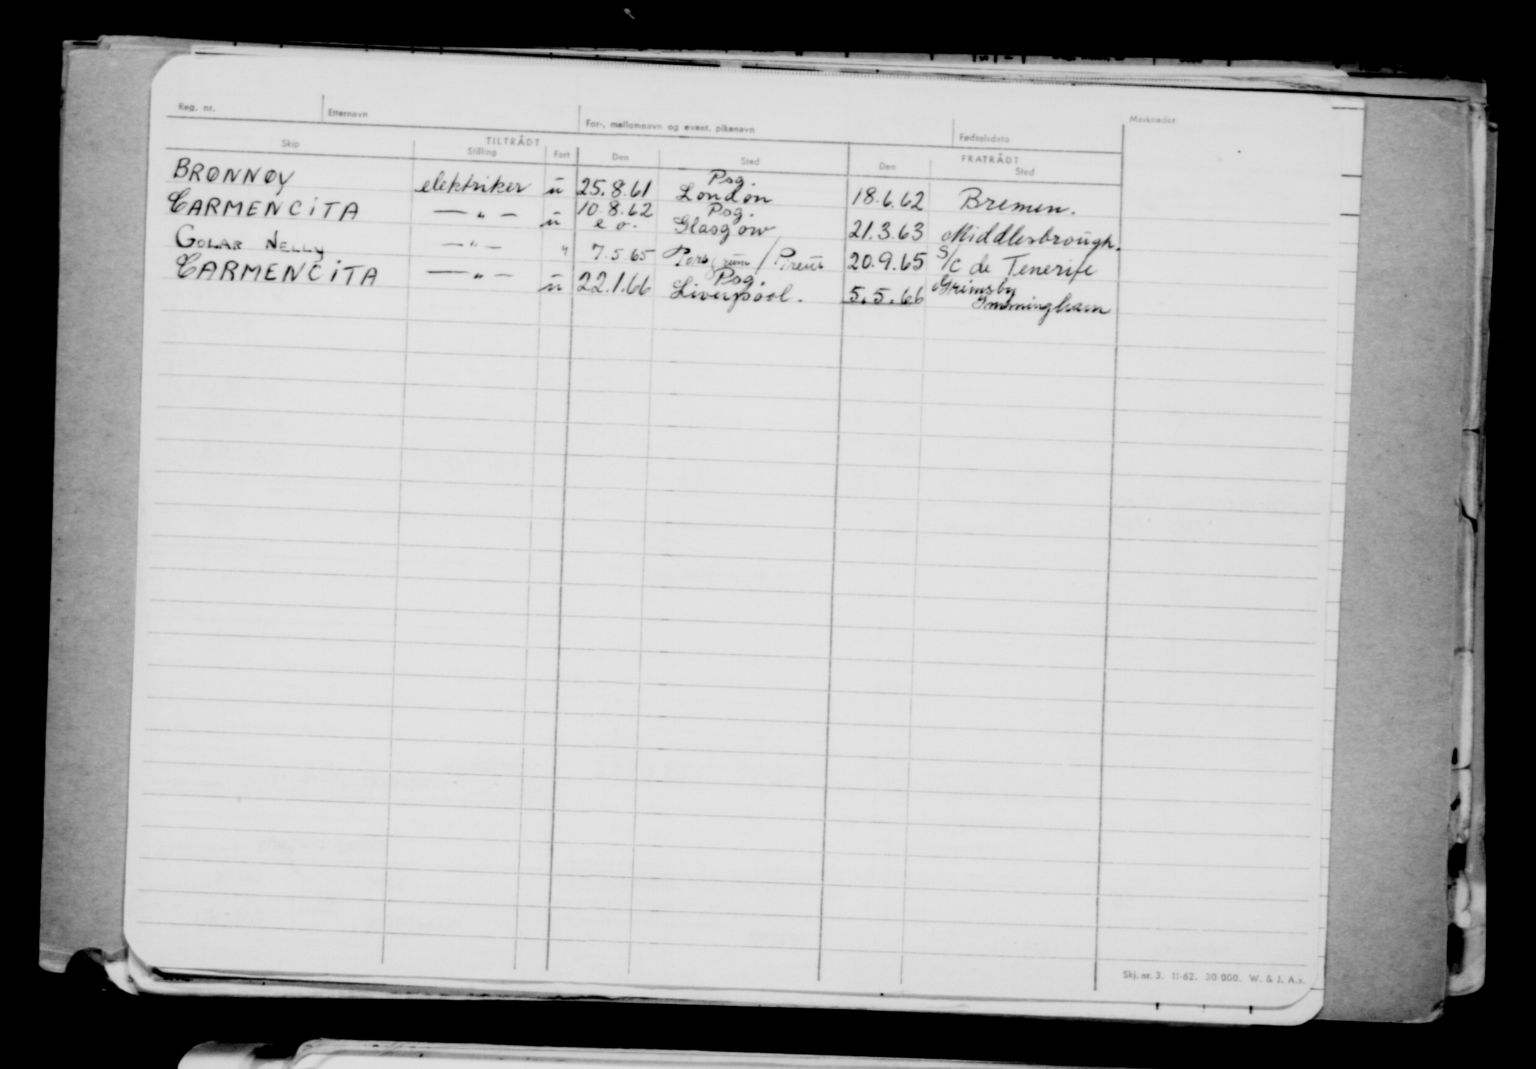 Reg. nr. Etternavn For-, mellomnavn og event. pikenavn Fødselsdato Merknader
TILTRÅDT FRATRÅDT
Skip Stilling Fart Den Sted Den Sted
BRØNNØY elektriker u 25.8.61 Psg. London 18.6.62 Bremen.
CARMENCITA — " — u 10.8.62 e o. Psg. Glasgow 21.3.63 Middlesbrough.
GOLAR NELLY — " — " 7.5.65 Porsgrunn / Pireus 20.9.65 S/C de Tenerife
CARMENCITA — " — u 22.1.66 Psg. Liverpool. 5.5.66 Grimsby Immingham
Skj. nr. 3. 11-62. 30 000. W. & J. A.s.